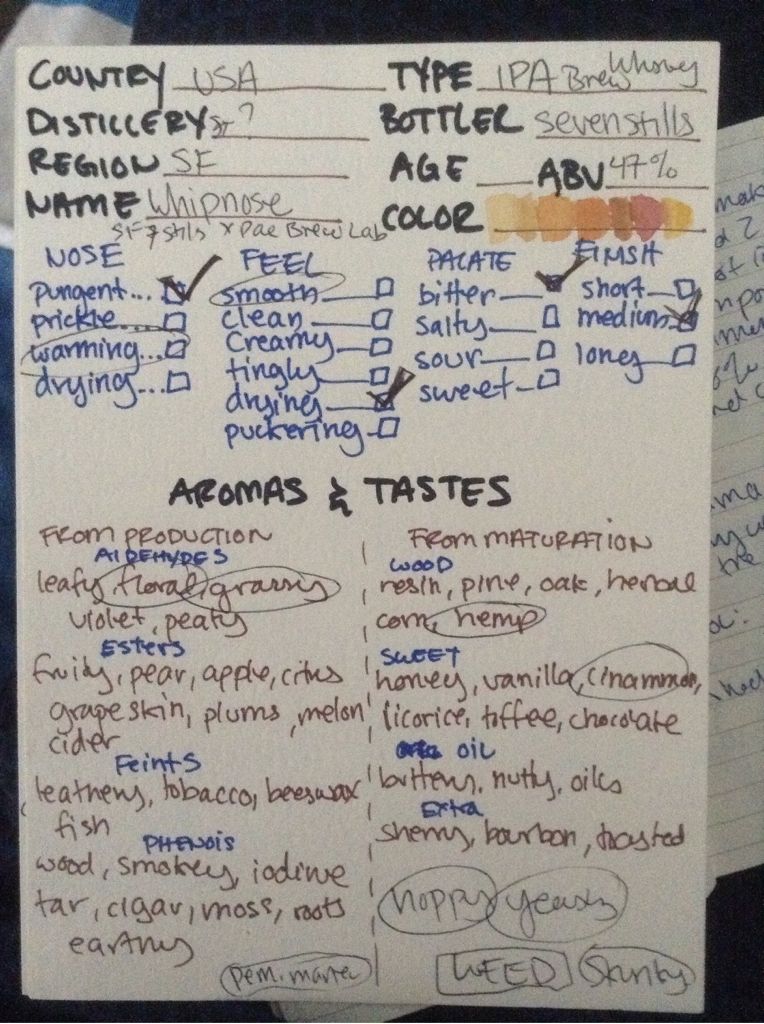 COUNTRY USA TYPE IPA Brew Whiskey
DISTILLERY SF? BOTTLER sevenstills
REGION SF AGE ABV 47%
NAME Whipnose COLOR
SF 7 Stills x Pac Brew Lab
NOSE FEEL PALATE FINSH
pungent... smooth bitter short
prickle... clean salty medium
warming... creamy sour long
drying... tingly sweet
drying
puckering
AROMAS & TASTES
FROM PRODUCTION
ALDEHYDES
leafy, floral, grassy
violet, peaty
Esters
fruity, pear, apple, citrus
grapeskin, plums, melon
cider
Feints
leathery, tobacco, beeswax
fish
PHENOLS
wood, smokey, iodine
tar, cigar, moss, roots
earthy
FROM MATURATION
WOOD
resin, pine, oak, herbal
corn, hemp
SWEET
honey, vanilla, cinammon,
licorice, toffee, chocolate
OIL
buttery, nutty, oils
Extra
sherry, bourbon, toasted
hoppy yeasty
WEED Skunky